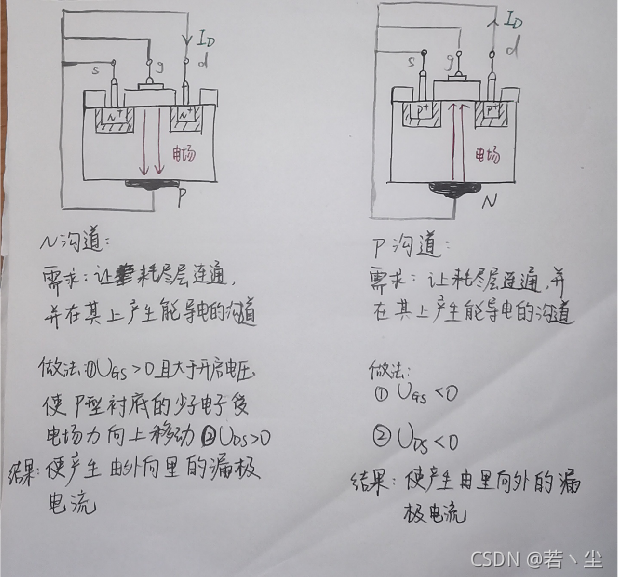 I_D
s
g
d
N⁺
N⁺
电场
P
N沟道:
需求: 让耗尽层连通,
并在其上产生能导电的沟道
做法:①U_GS>0且大于开启电压,
使P型衬底的少子电子受
电场力向上移动②U_DS>0
结果: 使产生由外向里的漏极
电流
I_D
s
g
d
P⁺
P⁺
电场
N
P沟道:
需求: 让耗尽层连通,并
在其上产生能导电的沟道
做法:
①U_GS<0
②U_DS<0
结果: 使产生由里向外的漏
极电流
CSDN @若丶尘